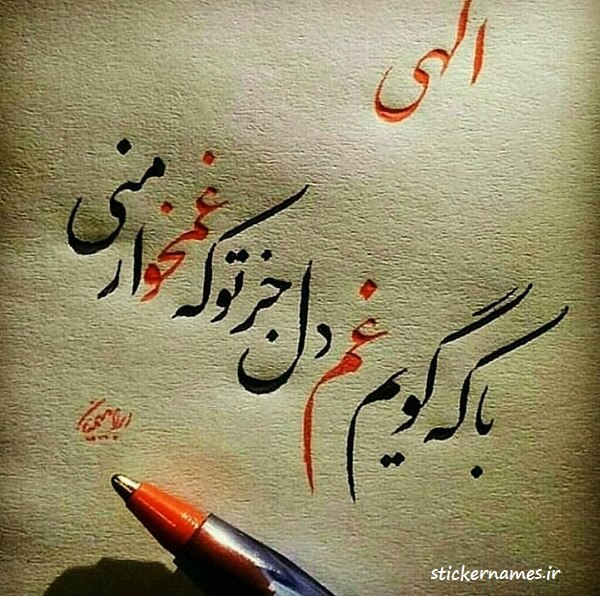 الهی
با که گویم غم دل جز تو که غمخوار منی
stickernames.ir